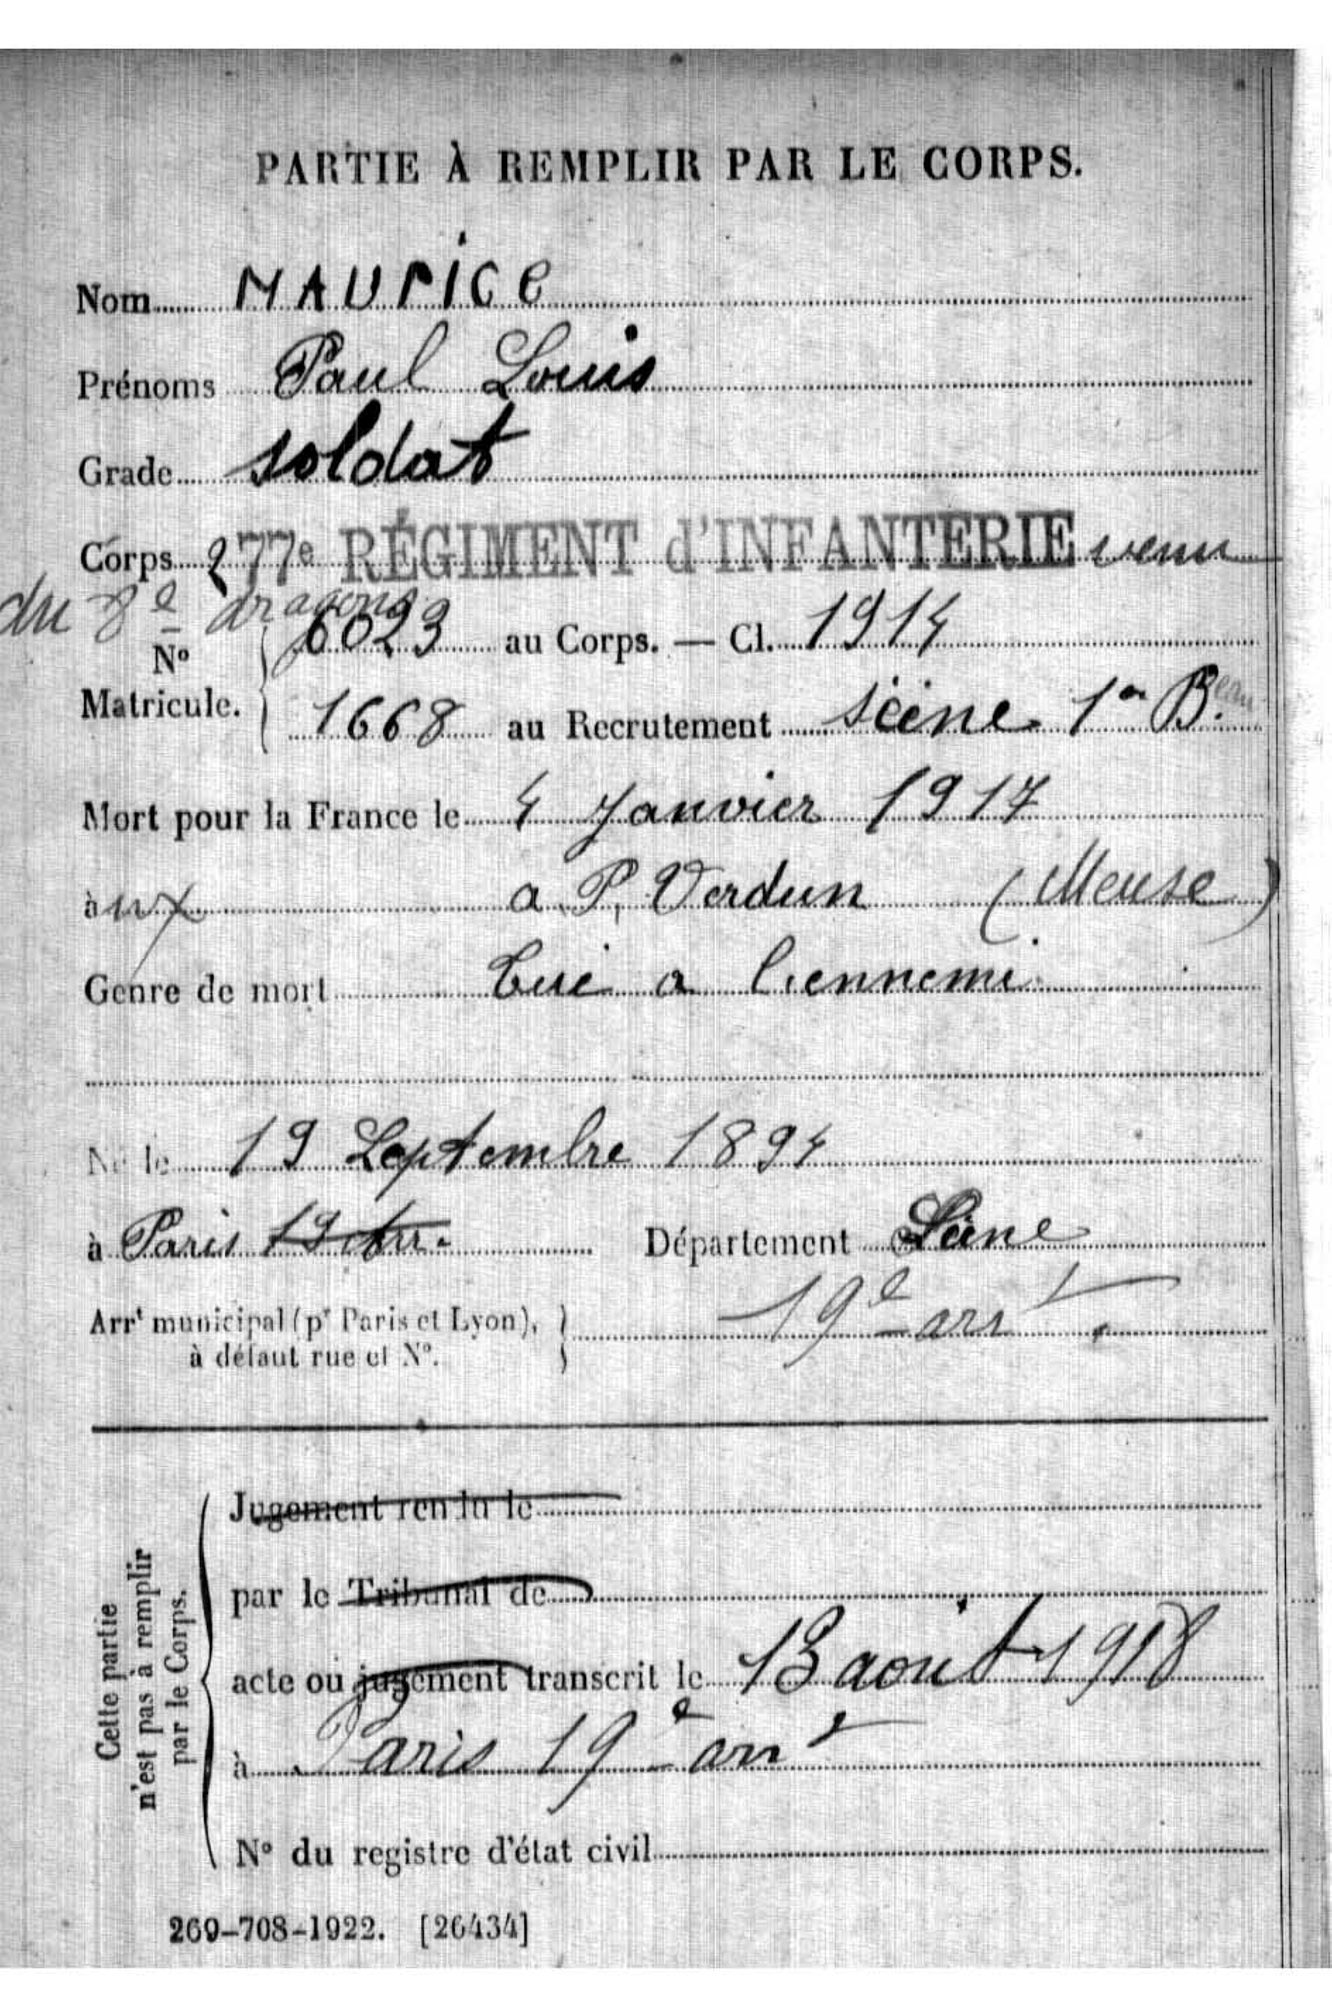 PARTIE À REMPLIR PAR LE CORPS.
Nom MAURICE
Prénoms Paul Louis
Grade soldat
Corps 277e RÉGIMENT d'INFANTERIE venu
du 8e dragons
No Matricule. 6023 au Corps. — Cl. 1914
1668 au Recrutement Seine 1er Beau
Mort pour la France le 4 Janvier 1917
à a P. Verdun (Meuse)
Genre de mort tué a l'ennemi
Né le 19 Septembre 1894
à Paris 19e Arr. Département Seine
Arrt municipal (pr Paris et Lyon), 19e arrt.
à défaut rue et No.
Cette partie
n'est pas à remplir
par le Corps.
Jugement rendu le
par le Tribunal de
acte ou jugement transcrit le 13 août 1918
à Paris 19e arrt
No du registre d'état civil
269-708-1922. [26434]